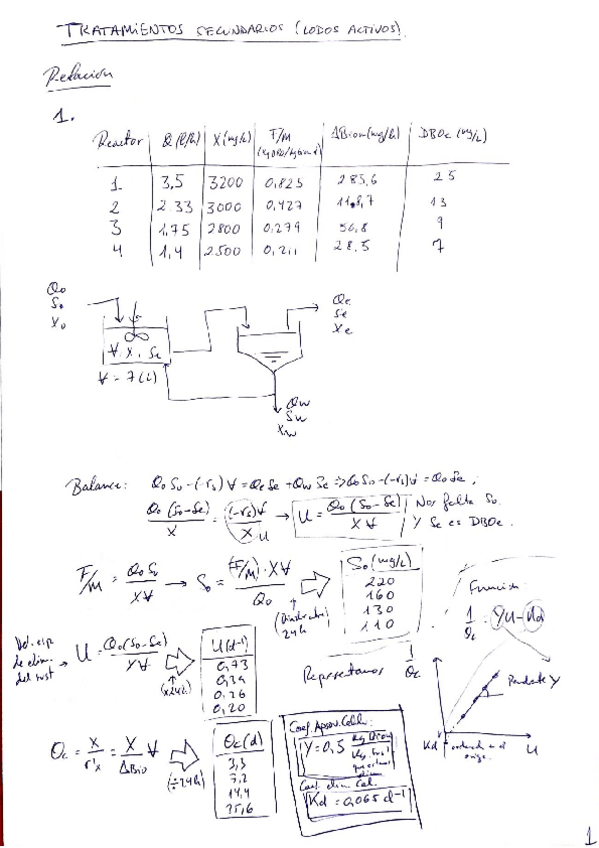 TRATAMIENTOS SECUNDARIOS (LODOS ACTIVOS).
Relación
1.
Reactor Q (l/h) X (mg/l) F/M ΔBiom (mg/h) DBOe (mg/L)
1 3,5 3200 0,825 285,6 25
2 2.33 3000 0,427 118,7 13
3 1,75 2800 0,279 56,8 9
4 1,4 2500 0,211 28.5 7
Qo
So
Xo
Qe
Se
Xe
V. X. Se
V = 7 (L)
Qw
Sw
Xw
Balance: Qo So - (-rs) V = Qe Se + Qw Se => Qo So - (-rs) V = Qo Se ;
Qo (So - Se) / X = (-rs) V / X → U = Qo (So - Se) / X V Nos falta So.
U
Y Se es DBOe.
F/M = Qo So / X V → So = (F/M) · X V / Qo
24h
So (mg/L)
220
160
130
110
Función
1/θc = Yu - Kd
Vel. esp.
de elim.
del sust
U = Qo (So - Se) / X V
(x24h)
U (d-1)
0,73
0,39
0,26
0,20
Representamos 1/θc
Pendiente Y
Kd
ordenada en el
orige.
U
θc = X / r'x = X / ΔBio V
(÷24h)
θc (d)
3,3
7,2
14,4
25,6
Y = 0,5
Kd = 0,065 d-1
1